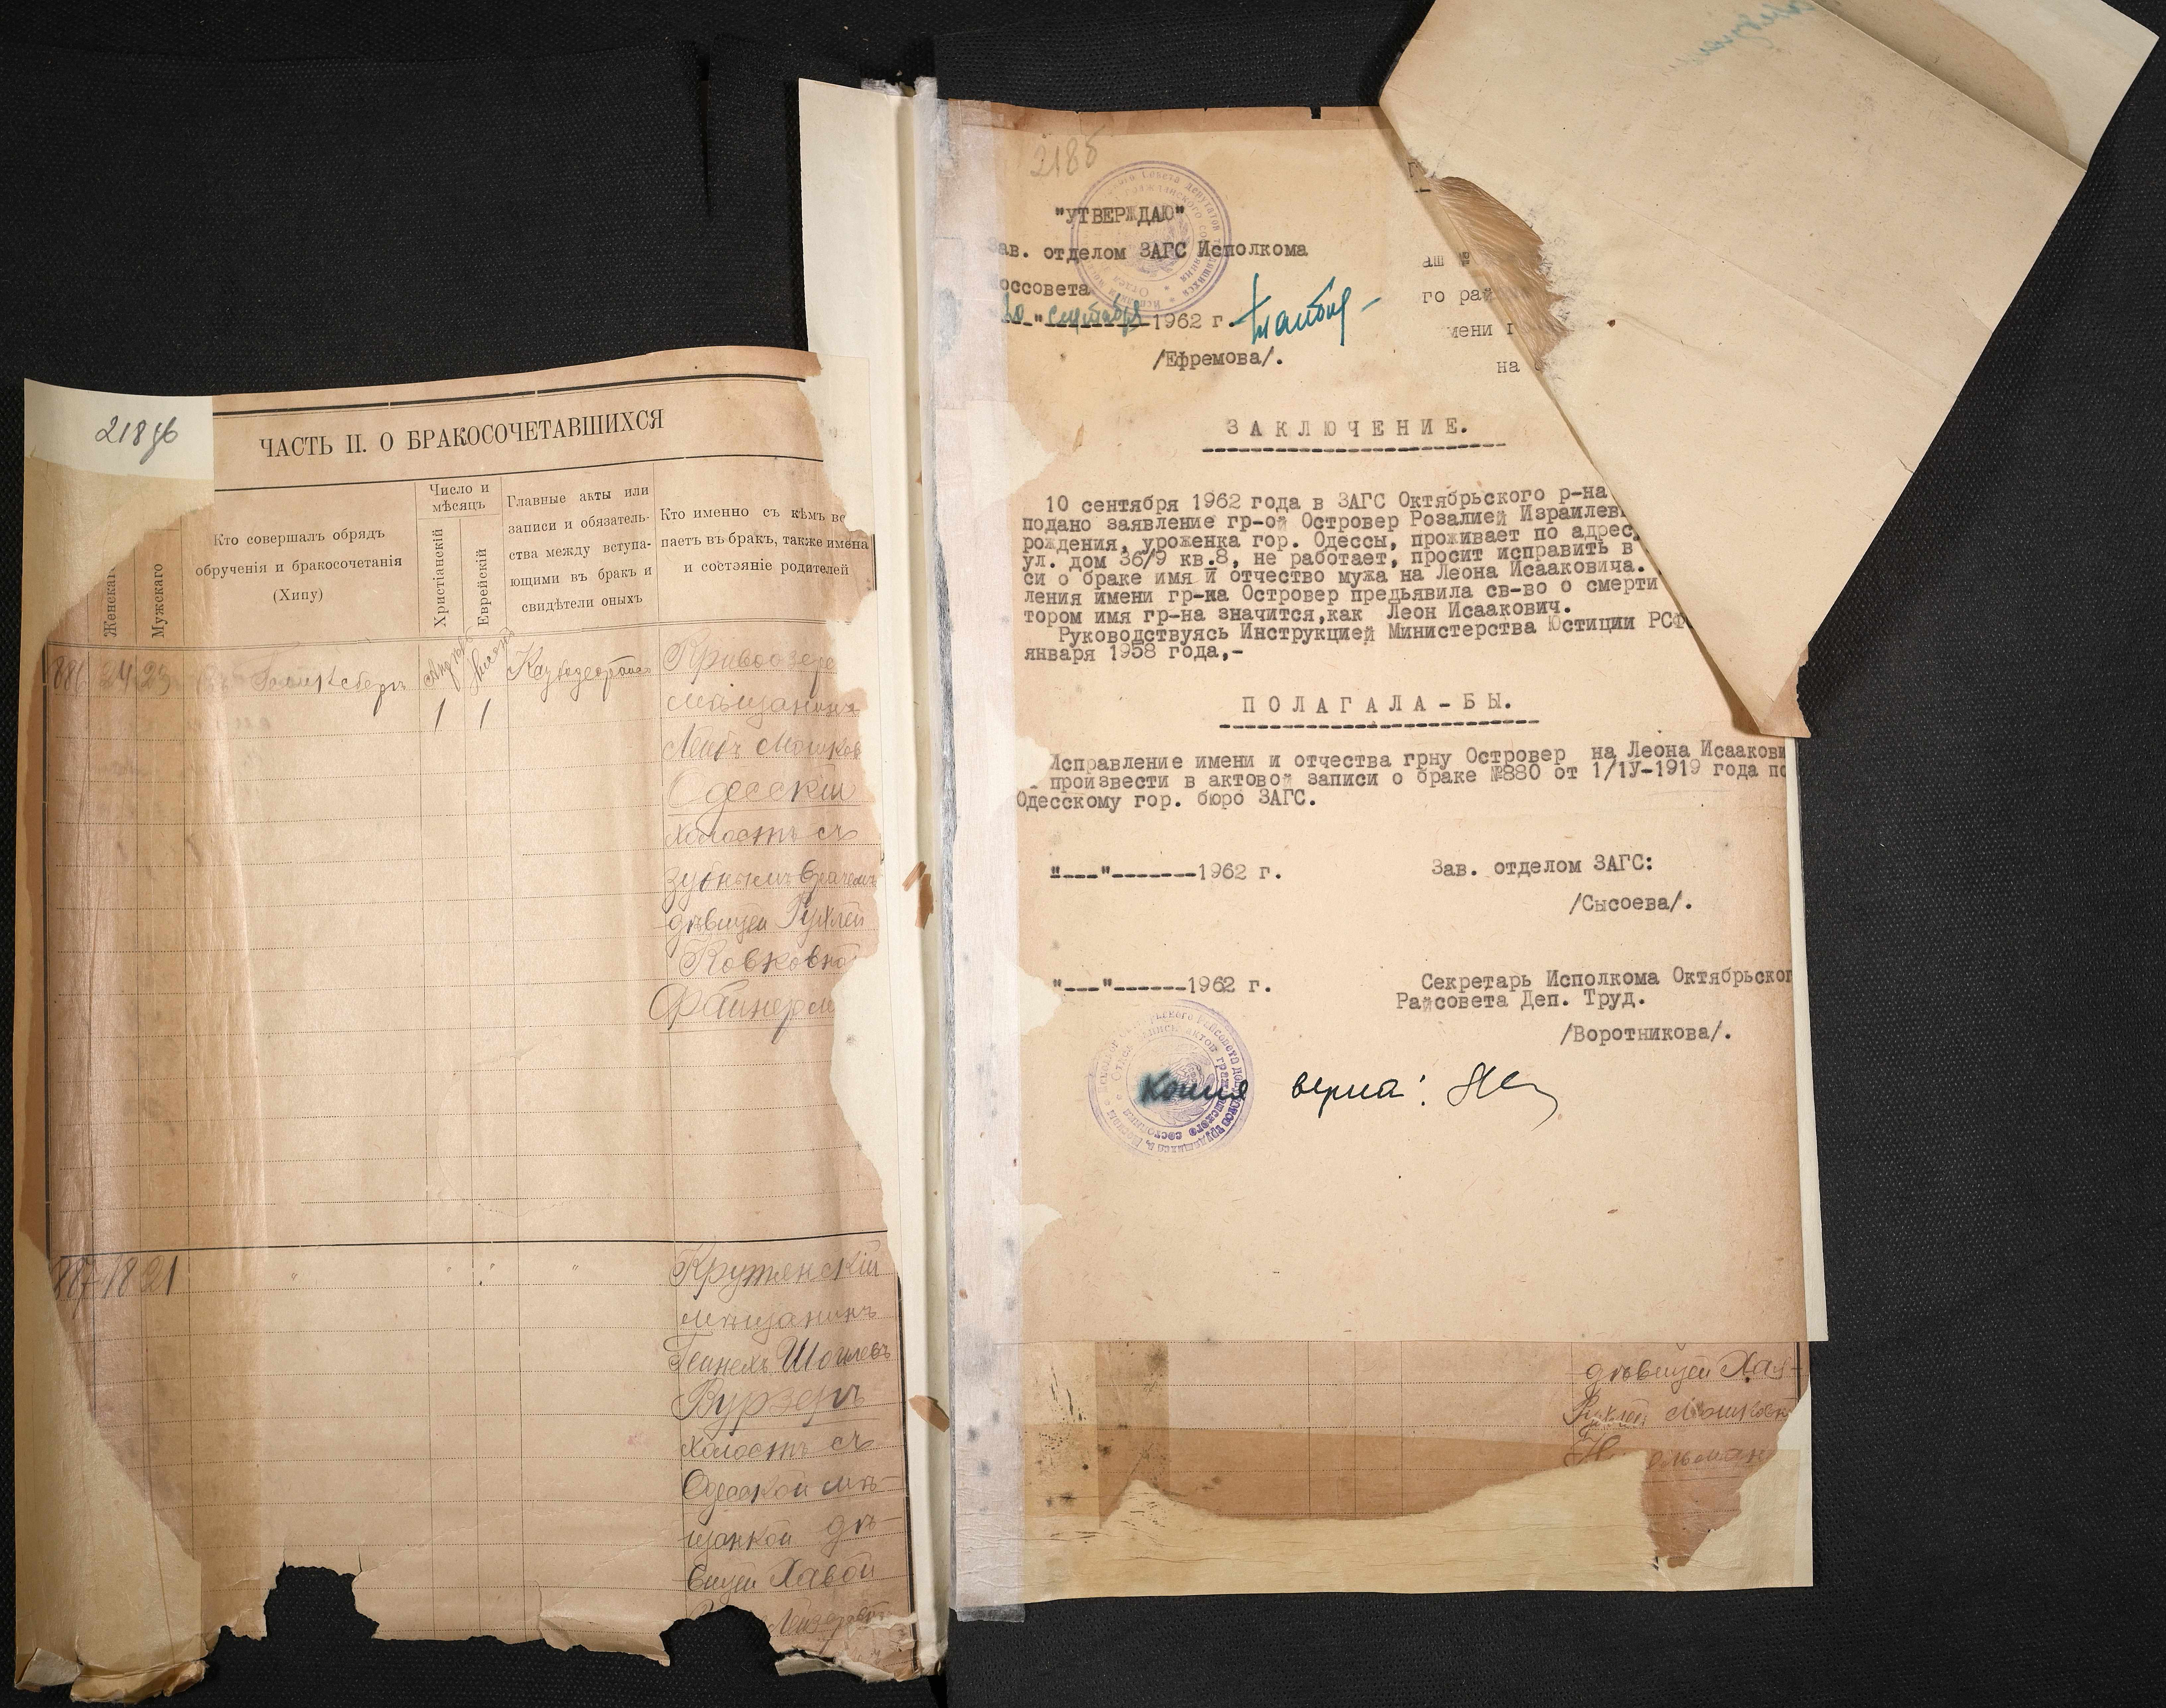 218 об
ЧАСТЬ II. О БРАКОСОЧЕТАВШИХСЯ
Женскаго
Мужскаго
Кто совершалъ обрядъ
обрученія и бракосочетанія
(Хипу)
Число и
мѣсяцъ
Христіанскій
Еврейскій
Главные акты или
записи и обязатель-
ства между вступа-
ющими въ бракъ и
свидѣтели оныхъ
Кто именно съ кѣмъ вс
паетъ въ бракъ, также имена
и состояніе родителей
886 24 23
1 1
Кривоозере
мѣщанинъ
Лейбъ Мошков
Одесскій
холостъ съ
зубнымъ врачемъ
дѣвицей Рухлей
Фаинерм
887 18 21
Крутянскій
мѣщанинъ
Вурзеръ
холостъ съ
Одесской мѣ-
щанкой дѣ-
вицей Хавой
218б
"УТВЕРЖДАЮ"
Зав. отделом ЗАГС Исполкома
оссовета
20 " сентября 1962 г.
/Ефремова/.
аш №
го рай
мени г
на
ЗАКЛЮЧЕНИЕ.
10 сентября 1962 года в ЗАГС Октябрьского р-на
подано заявление гр-ой Островер Розалией Израилев
рождения, уроженка гор. Одессы, проживает по адрес
ул. дом 36/9 кв.8, не работает, просит исправить в
си о браке имя и отчество мужа на Леона Исааковича.
ления имени гр-ка Островер предьявила св-во о смерти
тором имя гр-на значится,как Леон Исаакович.
Руководствуясь Инструкцией Министерства Юстиции РСФ
января 1958 года,-
ПОЛАГАЛА-БЫ.
Исправление имени и отчества грну Островер на Леона Исаакови
произвести в актовой записи о браке №880 от 1/1У-1919 года по
Одесскому гор. бюро ЗАГС.
"---"-------1962 г.
Зав. отделом ЗАГС:
/Сысоева/.
"---"------1962 г.
Секретарь Исполкома Октябрьског
Райсовета Деп. Труд.
/Воротникова/.
Копия верна:
дѣвицей Хая-
Рухлей Мошковн